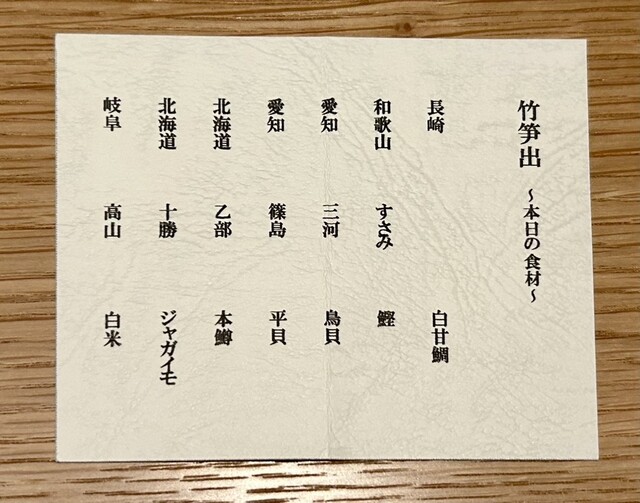 竹笋出 ～本日の食材～
長崎 白甘鯛
和歌山 すさみ 鰹
愛知 三河 鳥貝
愛知 篠島 平貝
北海道 乙部 本鱒
北海道 十勝 ジャガイモ
岐阜 高山 白米